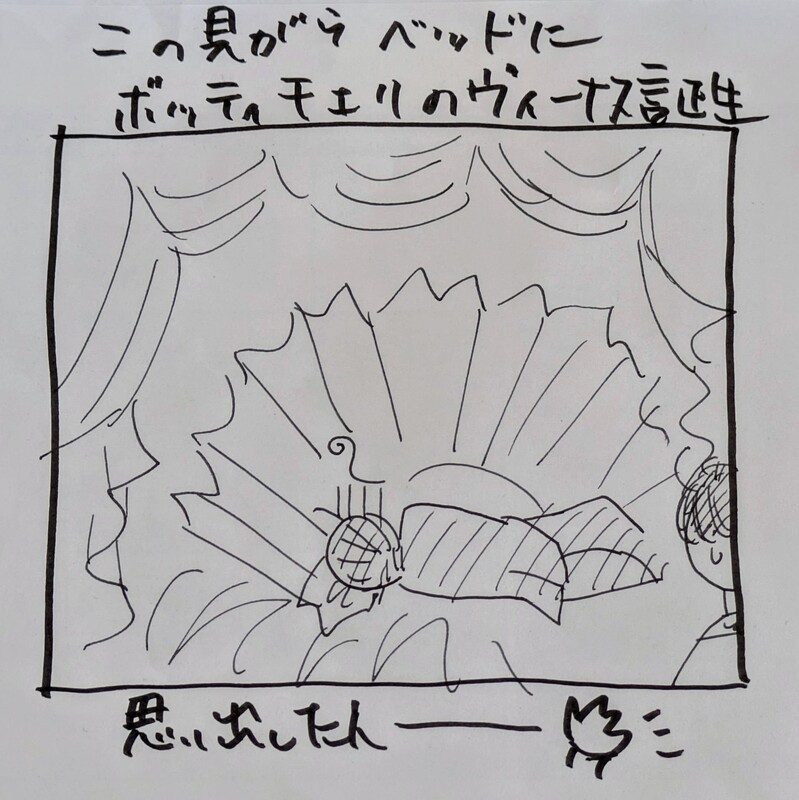 この貝がら ベッドに
ボッティチェリのヴィーナス誕生
思い出したん——